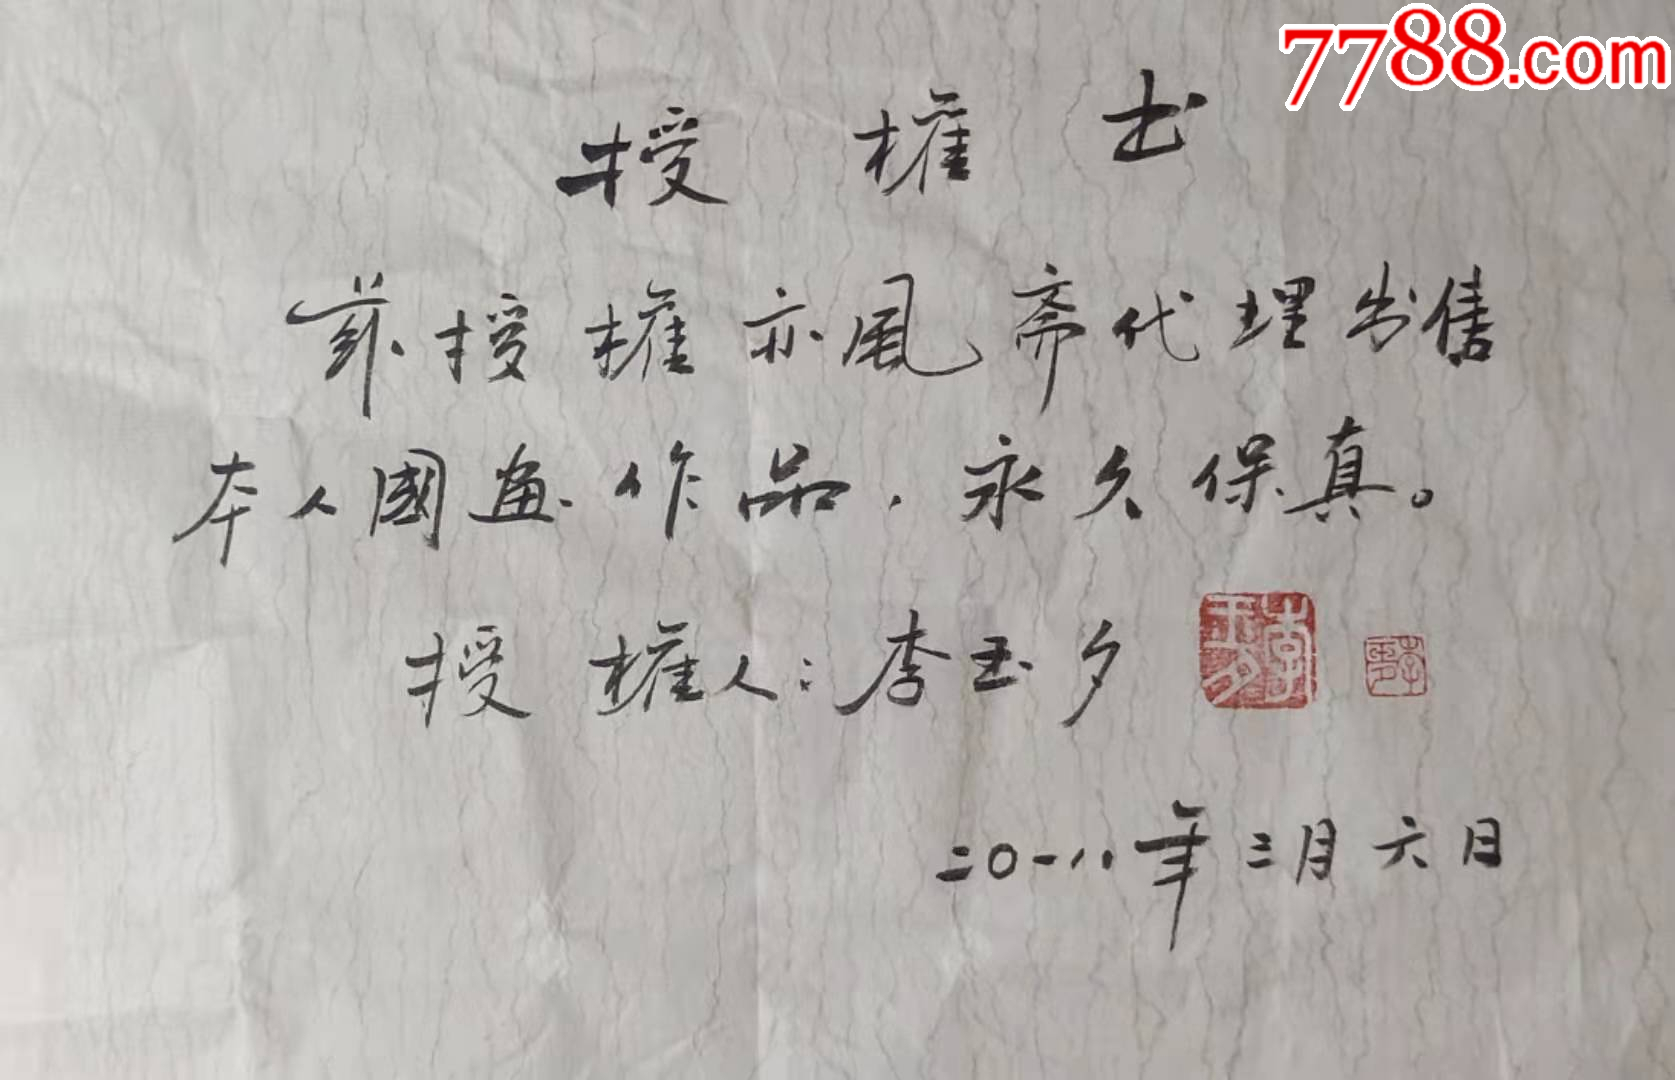 7788.com
授權书
兹授權亦風斋代理出售
本人國畫作品，永久保真。
授權人：李玉夕
二〇一八年三月六日